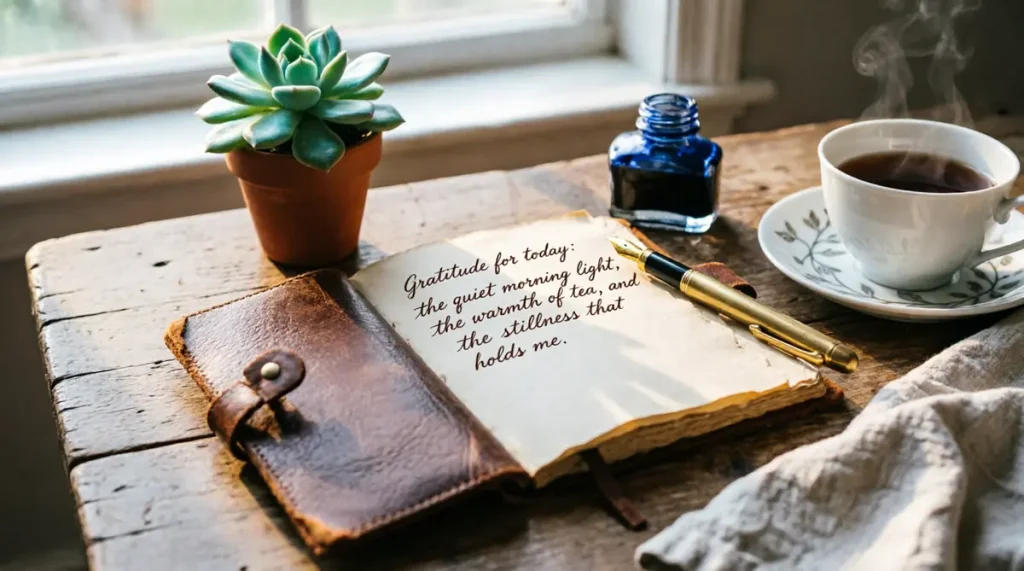 Gratitude for today:
the quiet morning light,
the warmth of tea, and
the stillness that
holds me.